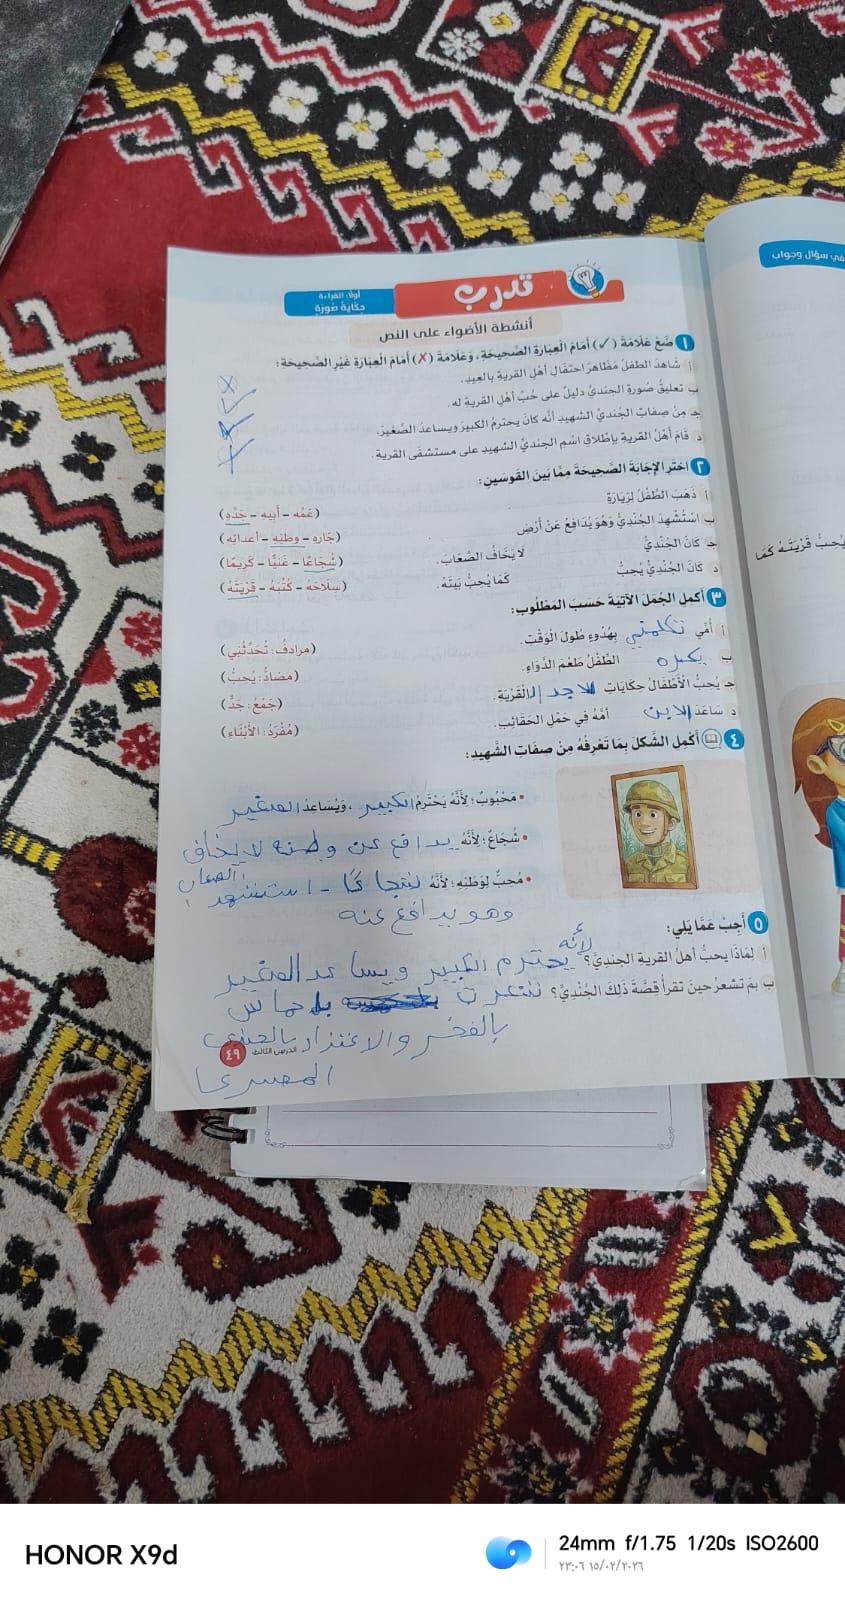 في سؤال وجواب
أولًا: القراءة
حكاية صورة
تدرب
أنشطة الأضواء على النص
١ ضَعْ عَلَامَةَ (✓) أَمَامَ الْعِبَارَةِ الصَّحِيحَةِ، وَعَلَامَةَ (✗) أَمَامَ الْعِبَارَةِ غَيْرِ الصَّحِيحَةِ:
أ شاهدَ الطفلُ مَظاهرَ احتفالِ أهلِ القريةِ بالعيدِ. ✗
ب تعليقُ صُورةِ الجنديِّ دليلٌ على حُبِّ أهلِ القريةِ له. ✓
جـ مِنْ صِفاتِ الجُنديِّ الشهيدِ أنَّه كانَ يحترمُ الكبيرَ ويساعدُ الصَّغيرَ.
د قامَ أهلُ القريةِ بإطْلاقِ اسْمِ الجنديِّ الشهيدِ على مستشفَى القريةِ.
٢ اخْتَرِ الإجَابَةَ الصَّحِيحَةَ مِمَّا بَيْنَ القَوْسَينِ:
أ ذَهَبَ الطِّفْلُ لِزِيَارَةِ (عَمِّه – أَبِيهِ – جَدِّهِ)
ب اسْتُشْهِدَ الجُنْدِيُّ وَهُوَ يُدَافِعُ عَنْ أَرْضِ (جَارِهِ – وَطَنِهِ – أَعْدَائِهِ)
جـ كَانَ الجُنْدِيُّ لَا يَخَافُ الصِّعَابَ. (شُجَاعًا – غَنِيًّا – كَرِيمًا)
د كَانَ الجُنْدِيُّ يُحِبُّ كَمَا يُحِبُّ بَيْتَهُ. (سِلَاحَهُ – كُتُبَهُ – قَرْيَتَهُ)
يُحِبُّ قَرْيَتَهُ كَمَا
٣ أكْمِلِ الجُمَلَ الآتِيَةَ حَسَبَ المَطْلُوبِ:
أ أُمِّي تكلمني بِهُدُوءٍ طُولَ الْوَقْتِ. (مرادفُ: تُحَدِّثُنِي)
ب يكره الطِّفْلُ طَعْمَ الدَّوَاءِ. (مضادُّ: يُحِبُّ)
جـ يُحِبُّ الأَطْفَالُ حِكَايَاتِ الْقَرْيَةِ. (جَمْعُ: جَدٌّ)
د سَاعَدَ الابن أمَّهُ فِي حَمْلِ الحَقَائِبِ. (مُفْرَدُ: الأَبْنَاءِ)
٤ أَكْمِلِ الشَّكْلَ بِمَا تَعْرِفُهُ مِنْ صِفَاتِ الشَّهِيدِ:
• مَحْبُوبٌ؛ لِأَنَّهُ يَحْتَرِمُ الكبير، وَيُسَاعِدُ الصغير
• شُجَاعٌ؛ لِأَنَّهُ يدافع عن وطنه لا يخاف
الصعاب
• مُحِبٌّ لِوَطَنِهِ؛ لِأَنَّهُ استشهد
وهو يدافع عنه
٥ أَجِبْ عَمَّا يَلِي:
أ لِمَاذَا يحبُّ أهلُ القريةِ الجنديَّ؟ لأنه يحترم الكبير ويساعد الصغير
ب بِمَ تَشعرُ حينَ تقرأُ قصَّةَ ذَلِكَ الجُنْدِيِّ؟
بالفخر والاعتزاز
الدرس الثالث ٤٩
HONOR X9d
24mm f/1.75 1/20s ISO2600
٢٣:٠٦ ١٥/٠٢/٢٠٢٦